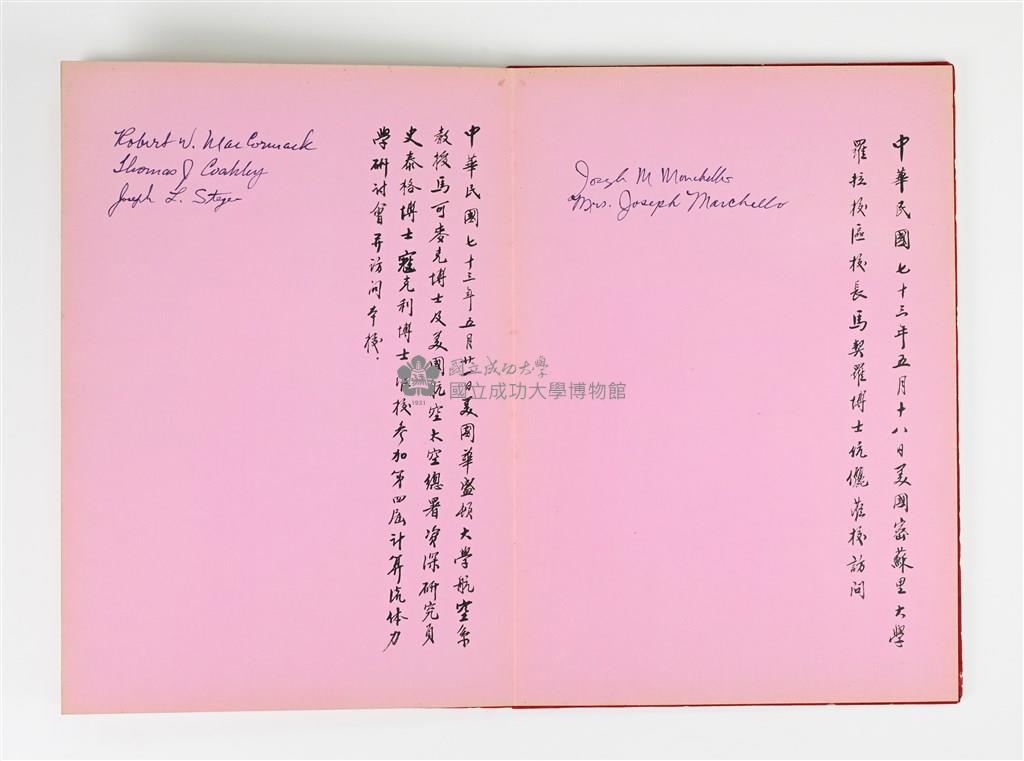 中華民國七十三年五月十八日美國密蘇里大學
羅拉校區校長馬契羅博士伉儷蒞校訪問
Joseph M Marchello
Mrs. Joseph Marchello
中華民國七十三年五月廿一日美國華盛頓大學航空系
教授馬可麥克博士及美國航空太空總署資深研究員
史泰格博士寇克利博士蒞校參加第四屆計算流体力
學研討會并訪問本校.
Robert W. MacCormack
Thomas J Coakley
Joseph L. Steger
國立成功大學
國立成功大學博物館
1931